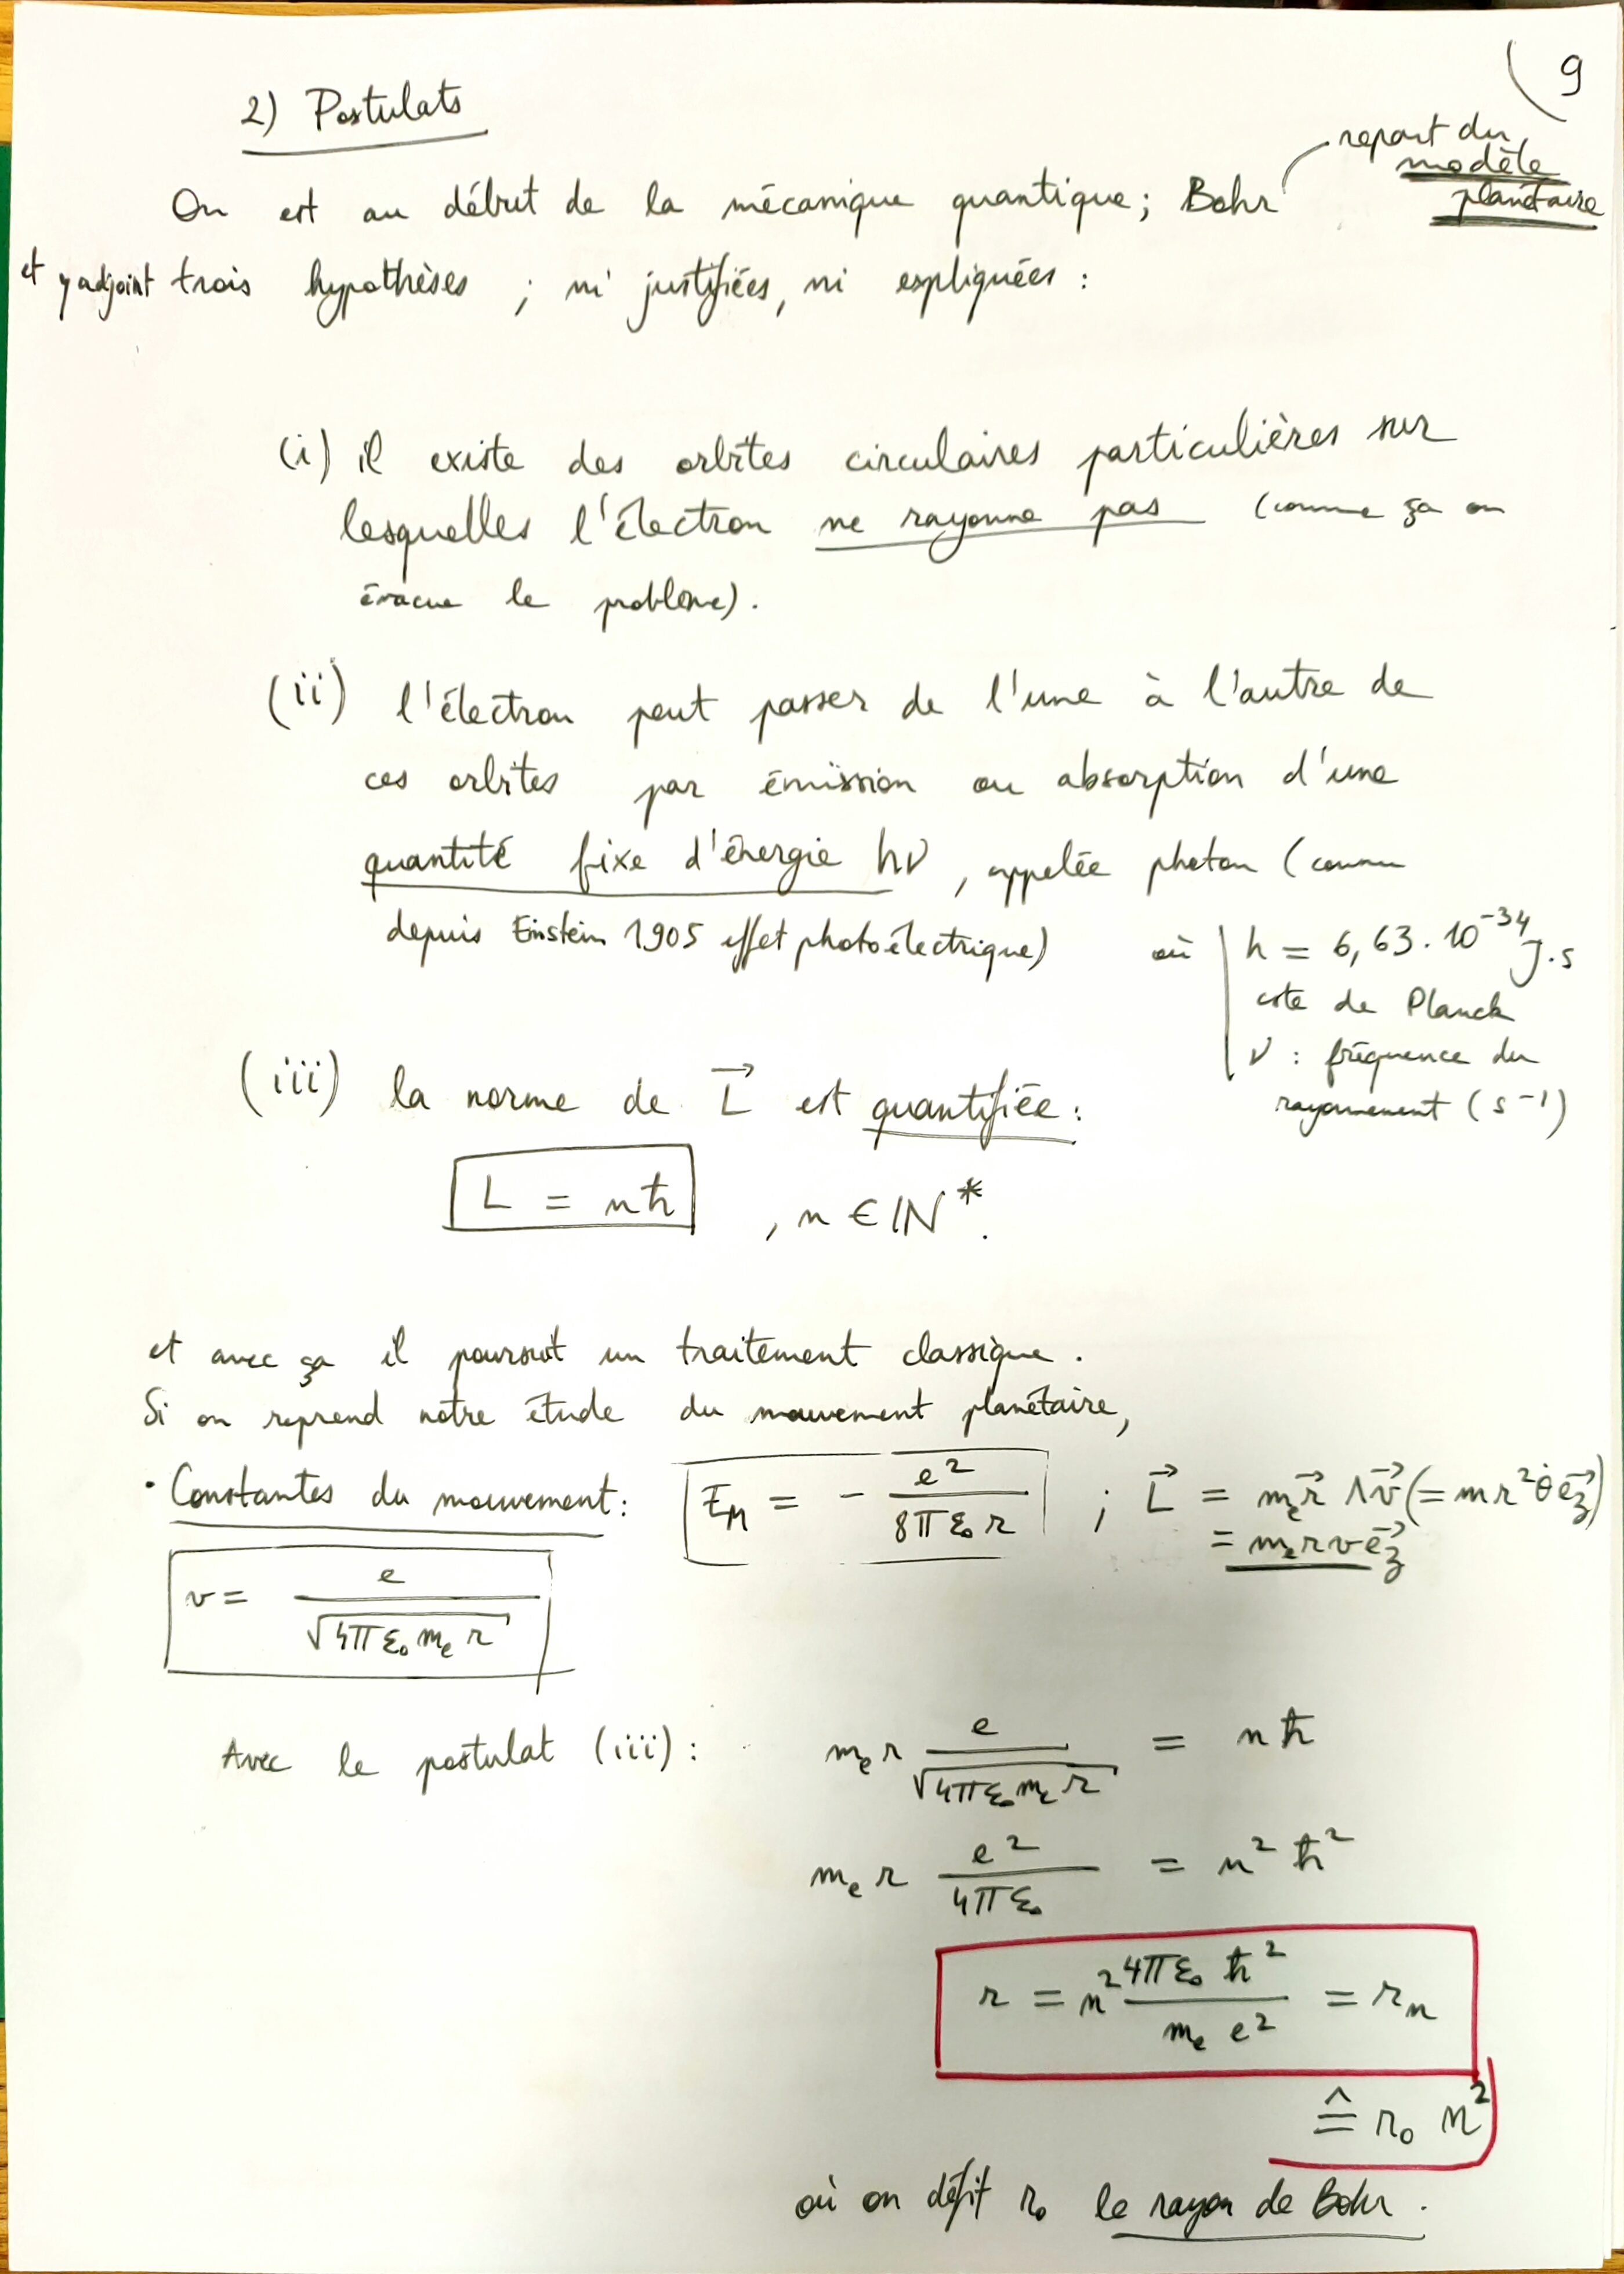 9
2) Postulats
On est au début de la mécanique quantique; Bohr repart du modèle planétaire
et y adjoint trois hypothèses ; ni justifiées, ni expliquées :
(i) il existe des orbites circulaires particulières sur
lesquelles l'électron ne rayonne pas (comme ça on
évacue le problème).
(ii) l'électron peut passer de l'une à l'autre de
ces orbites par émission ou absorption d'une
quantité fixe d'énergie hν, appelée photon (connu
depuis Einstein 1905 effet photoélectrique)
où h = 6,63.10⁻³⁴ J.s
cste de Planck
ν : fréquence du
rayonnement (s⁻¹)
(iii) la norme de L⃗ est quantifiée :
L = nħ , n ∈ ℕ*.
et avec ça il poursuit un traitement classique.
Si on reprend notre étude du mouvement planétaire,
• Constantes du mouvement: E_M = - e²/(8πε₀r) ; L⃗ = mₑr⃗ ∧ v⃗ (= mr²θ̇e⃗_z)
= mₑrve⃗_z
v = e/√(4πε₀mₑr)
Avec le postulat (iii) : mₑr e/√(4πε₀mₑr) = nħ
mₑr e²/(4πε₀) = n²ħ²
r = n² 4πε₀ħ²/(mₑe²) = rₙ
≙ r₀ n²
où on défit r₀ le rayon de Bohr.